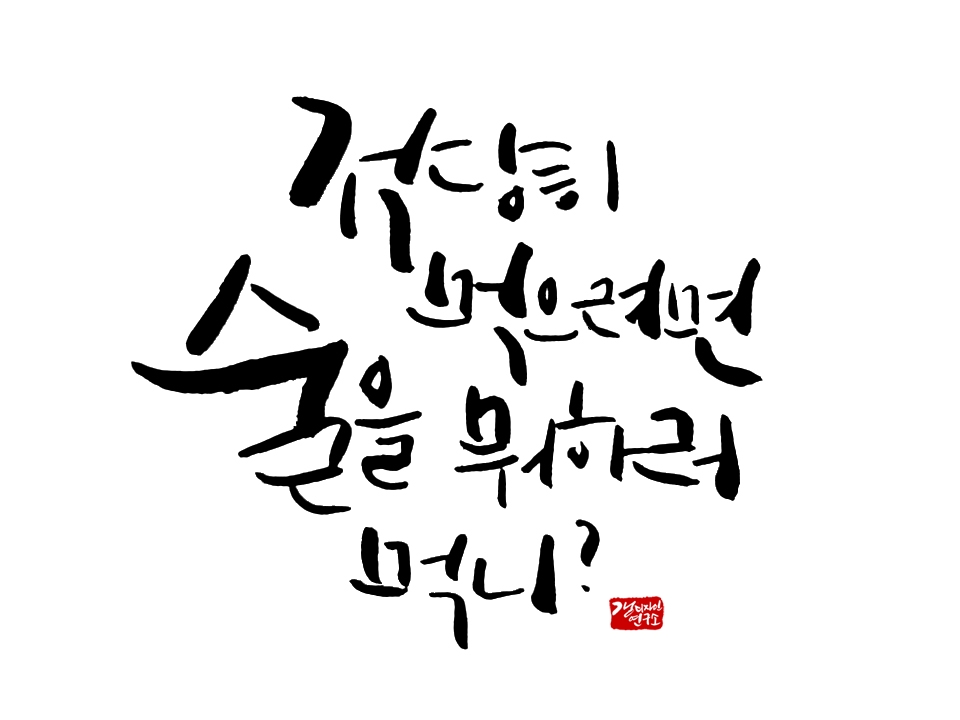 적당히
먹으려면
술을 뭐하러
먹니?
디자인
연구소